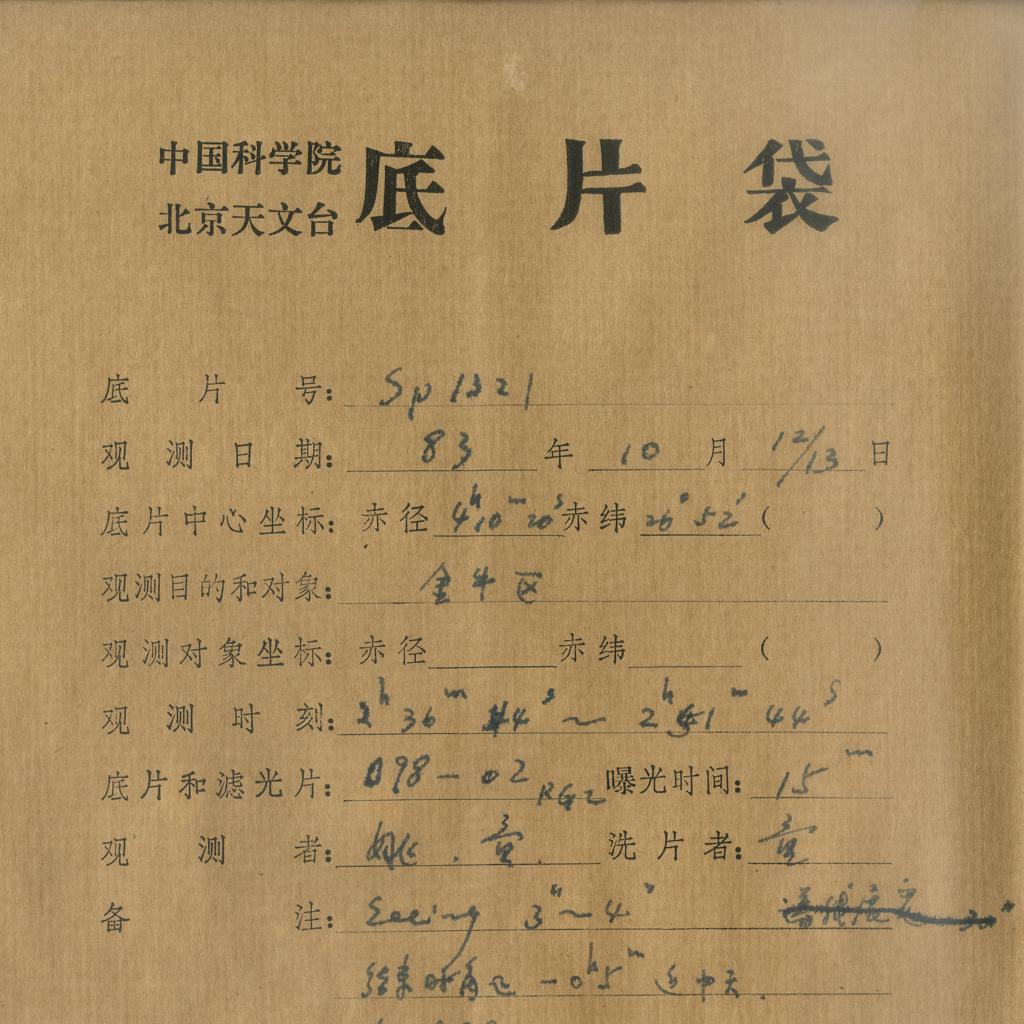 中国科学院
北京天文台
底片袋
底片号：Sp 1321
观测日期：83年10月12/13日
底片中心坐标：赤径 4h10m20s 赤纬 26°52′（ ）
观测目的和对象：金牛区
观测对象坐标：赤径 赤纬 （ ）
观测时刻：2h 36m 44s ~ 2h 51m 44s
底片和滤光片：098-02 RG2 曝光时间：15m
观测者：姚．童 洗片者：童
备注：Seeing 3″~4″
结束时角 -0h5m 近中天．